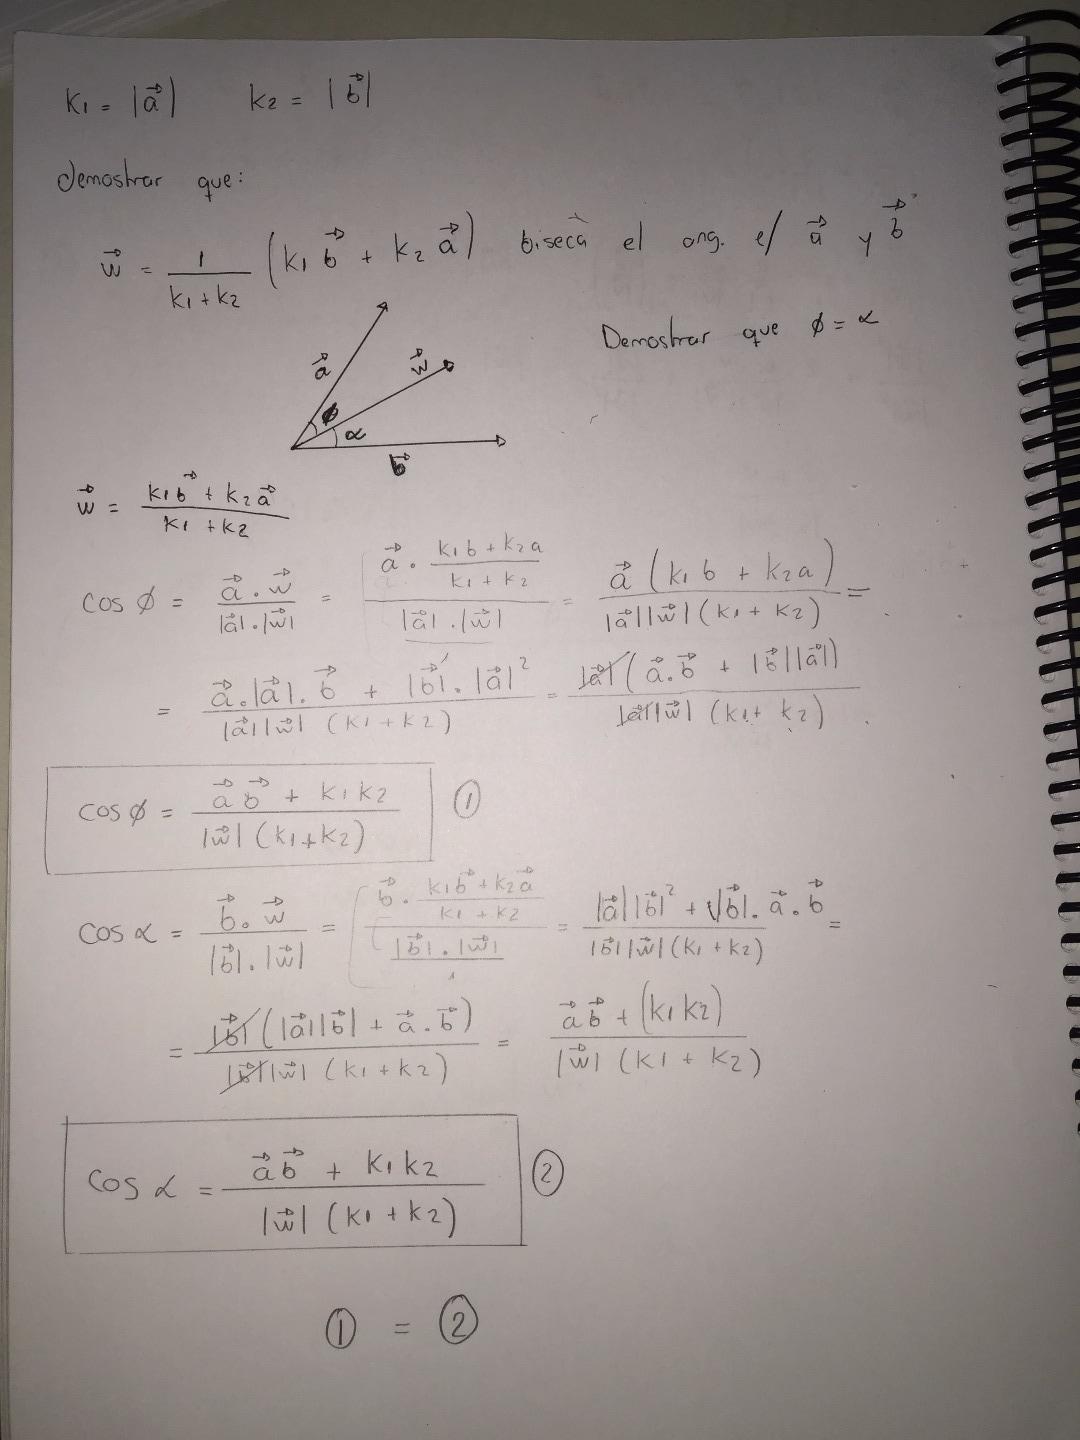 K1 = |a⃗| k2 = |b⃗|
demostrar que:
w⃗ = 1/(k1 + k2) (k1 b⃗ + k2 a⃗) biseca el ang. e/ a⃗ y b⃗
Demostrar que ϕ = α
a⃗ w⃗
ϕ α
b⃗
w⃗ = (k1 b⃗ + k2 a⃗)/(k1 + k2)
cos ϕ = (a⃗ . w⃗)/(|a⃗| . |w⃗|) = (a⃗ . (k1 b + k2 a)/(k1 + k2))/(|a⃗| . |w⃗|) = (a⃗ (k1 b + k2 a))/(|a⃗| |w⃗| (k1 + k2)) =
= (a⃗ . |a⃗| . b⃗ + |b⃗| . |a⃗|²)/(|a⃗| |w⃗| (k1 + k2)) = (|a⃗| (a⃗ . b⃗ + |b⃗| |a⃗|))/(|a⃗| |w⃗| (k1 + k2))
cos ϕ = (a⃗ b⃗ + k1 k2)/(|w⃗| (k1 + k2)) ①
cos α = (b⃗ . w⃗)/(|b⃗| . |w⃗|) = (b⃗ . (k1 b⃗ + k2 a⃗)/(k1 + k2))/(|b⃗| . |w⃗|) = (|a⃗| |b⃗|² + |b⃗| . a⃗ . b⃗)/(|b⃗| |w⃗| (k1 + k2)) =
= (|b⃗| (|a⃗| |b⃗| + a⃗ . b⃗))/(|b⃗| |w⃗| (k1 + k2)) = (a⃗ b⃗ + (k1 k2))/(|w⃗| (k1 + k2))
cos α = (a⃗ b⃗ + k1 k2)/(|w⃗| (k1 + k2)) ②
① = ②